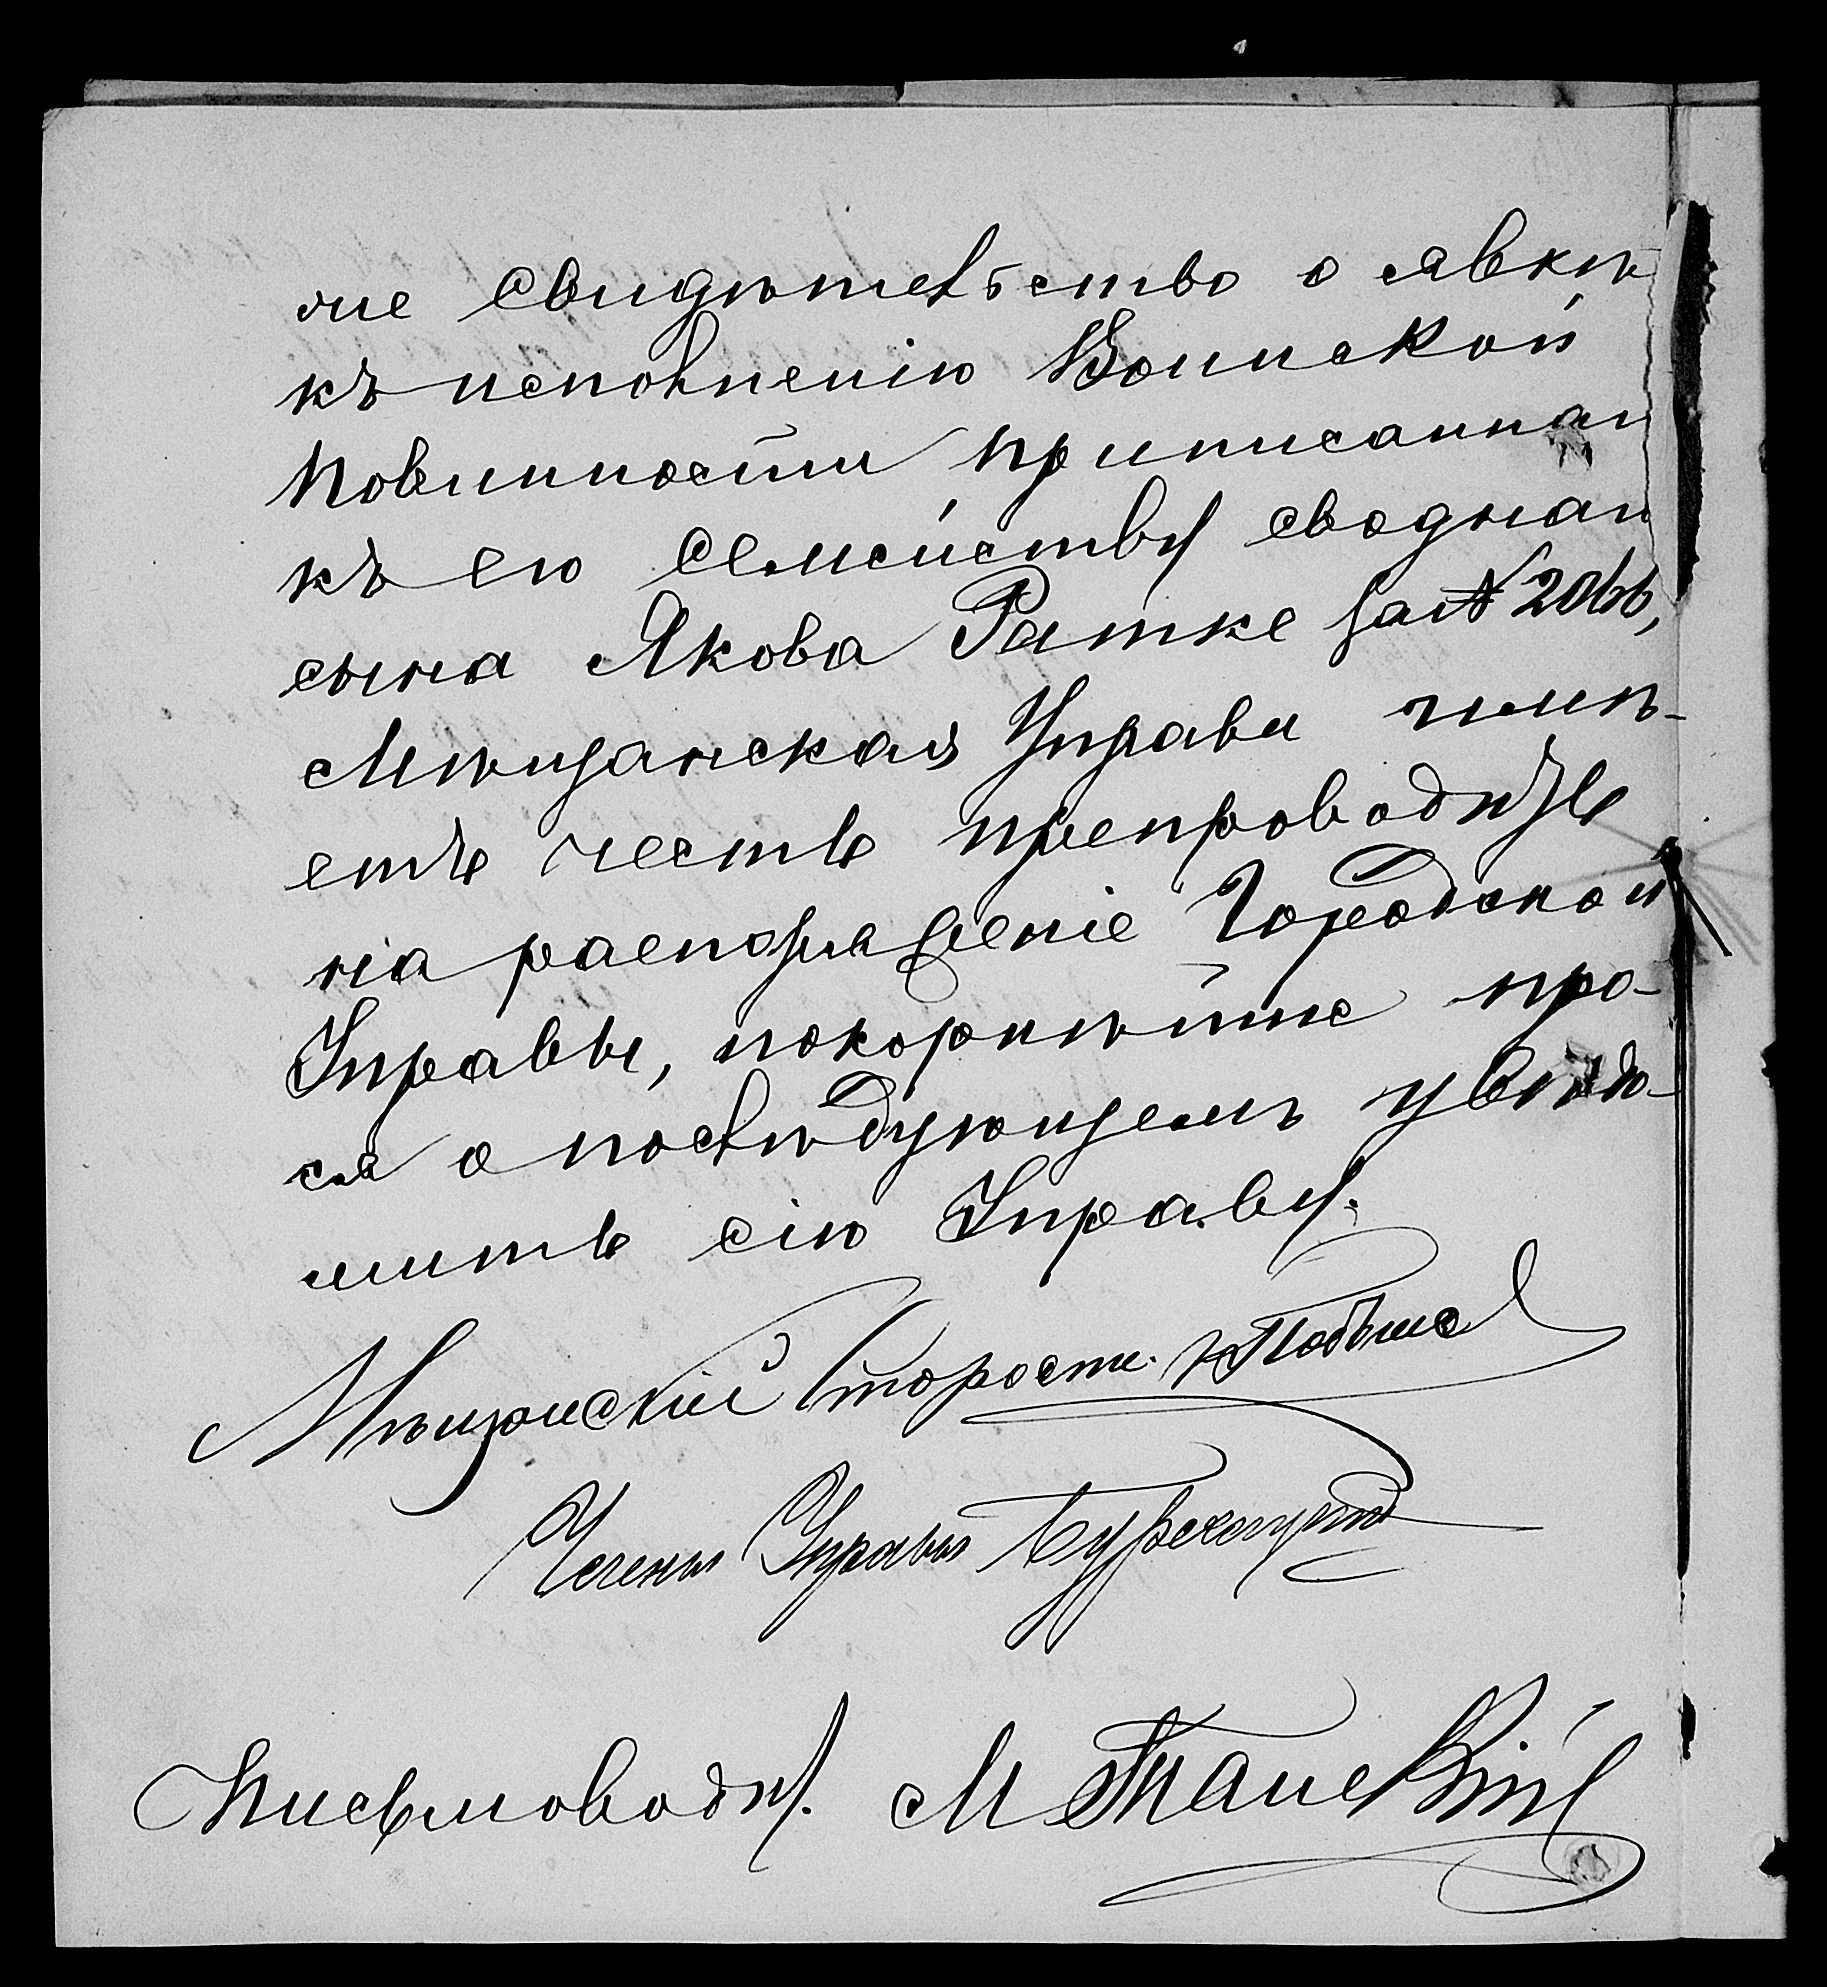 же свидѣтельство о явкѣ
къ исполненію Воинской
повинности приписаннаго
къ его семейству сводного
сына Якова Ратке за № 2066,
Мѣщанская Управа имѣ-
етъ честь препроводить
на распоряженіе Городской
Управы, покорнѣйше про-
ся о послѣдующемъ увѣдо-
мить сію Управу.
Мѣщанскій Староста
Члены Управы
Письмовод. М